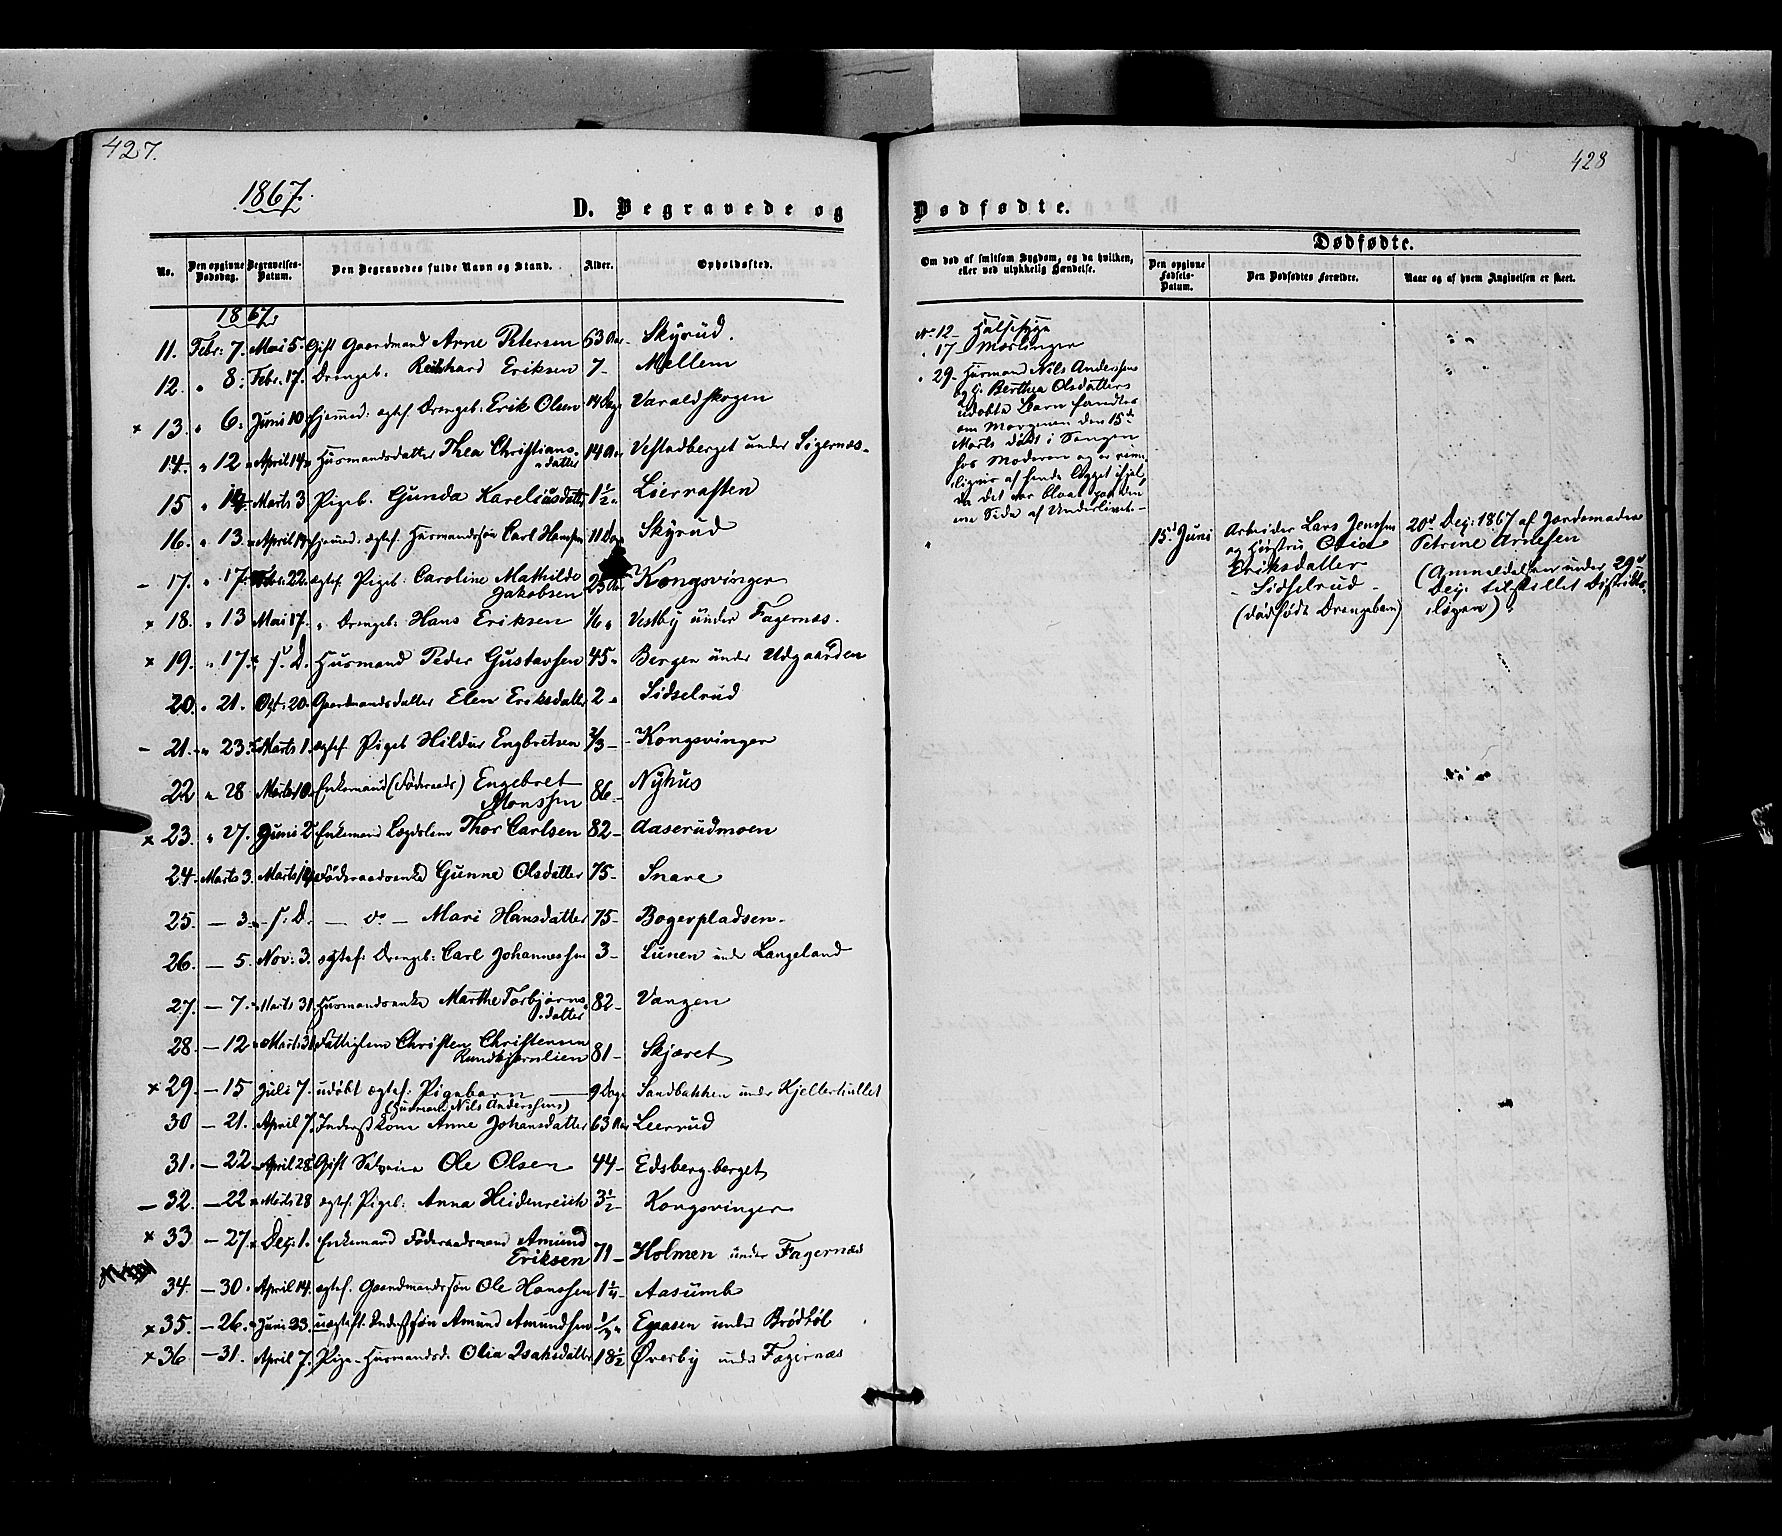 427.
428
1867.
D. Begravede og
Dødfødte.
No.
Den opgivne Dødsdag.
Begravelses-Datum.
Den Begravedes fulde Navn og Stand.
Alder.
Opholdssted.
Om død af smitsom Sygdom, og da hvilken, eller ved ulykkelig Hændelse.
Dødfødte.
Den opgivne Fødsels-Datum.
Den Dødfødtes Forældre.
Naar og af hvem Angivelsen er skeet.
1867.
11. Febr: 7. Mai 5. Gift Gaardmand Arne Petersen 63 Aar Skyrud.
12. " 8. Febr. 17. Drengeb. Richard Eriksen 7 - Mellem
× 13. " 6. Juni 10 hjemmed: ægtef Drengeb: Erik Olsen 14 Dage Varaldskogen
14. " 12 " April 14 " Husmandsdatter Thea Christians-
datter 14 Aar Vestadberget under Sigernæs.
15 " 14. Marts 3 Pigeb. Gunda Kareliusdatter 1½ " Liernæsten
16. " 13. " April 14 hjemmed. ægtef. Husmandssøn Carl Hansen 11 Dage Skyrud
- 17. " 17. Febr. 22. ægtef. Pigeb. Caroline Mathilde
Jakobsen Kongsvinger
× 18. " 13 Mai 17. " Drengeb: Hans Eriksen 1/6 " Vestby under Fagernæs.
× 19. " 17. s. D. Husmand Peder Gustavsen 45 " Bergen under Udgaarden
20. " 21. Oct. 20. Gaardmandsdatter Elen Eriksdatter 2 " Sidselrud
- 21. " 23. Marts 1. ægtef. Pigeb Hildur Engbretsen 2/3 - Kongsvinger
22 " 28 Marts 10. Enkemand (Føderaads) Engebret
Monssen 86. Nyhus
× 23. " 27. Juni 2 Enkemand Lægdslem Thor Carlsen 82 - Aaserudmoen
24. Marts 3. Marts Føderaadsenke Gunne Olsdatter 75 - Snare
25 - 3. s. D. - do - Mari Hansdatter 75 - Bogerpladsen
26. - 5. Nov: 3. ægtef: Drengeb: Carl Johannessen 3 - Lunen under Langeland
27. - 7. Marts 31. Husmandsenke Marthe Torbjørns-
datter 82 - Vangen
28. - 12 Marts 31 Fattiglem Christen Christensen
Rundbjørnlien 81 - Skjæret
× 29. - 15 Juli 7. udøbt ægtef. Pigebarn - 9 Dage Sandbakken under Kjellerhullet
(Husmand Nils Anderssens)
30 - 21. April 7. Inderstkone Anne Johansdatter 63 Aar Leerrud
31. - 22 April 28 Gift Ole Olsen 44 - Edsberg-berget
- 32. - 22 Marts 28 ægtef. Pigeb: Anna Heidenreich 3½ Kongsvinger
× 33 - 27. Dec. 1. Enkemand Føderaadsmand Amund
Eriksen 71 - Holmen under Fagernæs
34. - 30. April 14. ægtef. Gaardmandssøn Ole Hanssen 1¼ - Aasumb
× 35. - 26. Juni 23. uægtef. Inderstsøn Amund Amundsen ½ " Egaasen under Brødbøl
× 36 - 31. April 7. Pige - Husmandsd. Olia Isaksdatter 18½ Øverby under Fagernæs
No 12 - Halsesyge
" 17 - Mæslinger
" 29 - Husmand Nils Anderssens
og h. Berthea Olsdatters
udøbte Barn fandtes
om Morgenen den 15de
Marts dødt i Sengen
hos Moderen og er rime-
ligvis af hende lagget ihjel,
da det var blaat paa den
ene Side af Underlivet. -
15d Juni
Arbeider Lars Jenssen
og Hustru Olia
Eriksdatter
- Sidselrud -
(dødfødt Drengebarn)
20d Dec: 1867 af Jordemoder
Petrine Arnesen
(Anmeldelsen under 29d
Dec: tilstillet Distrikts-
lægen).